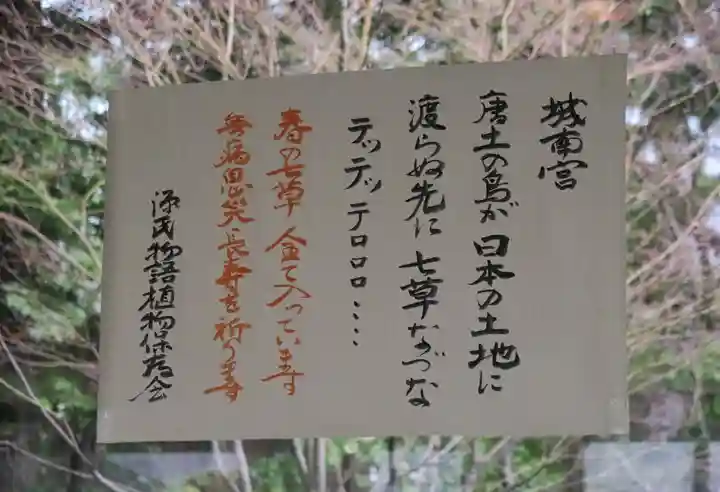 城南宮
唐土の鳥が 日本の土地に
渡らぬ先に 七草なづな
テッテッ テロロロ・・・
春の七草 全て入っています
無病息災長寿を祈ります
源氏物語植物保存会